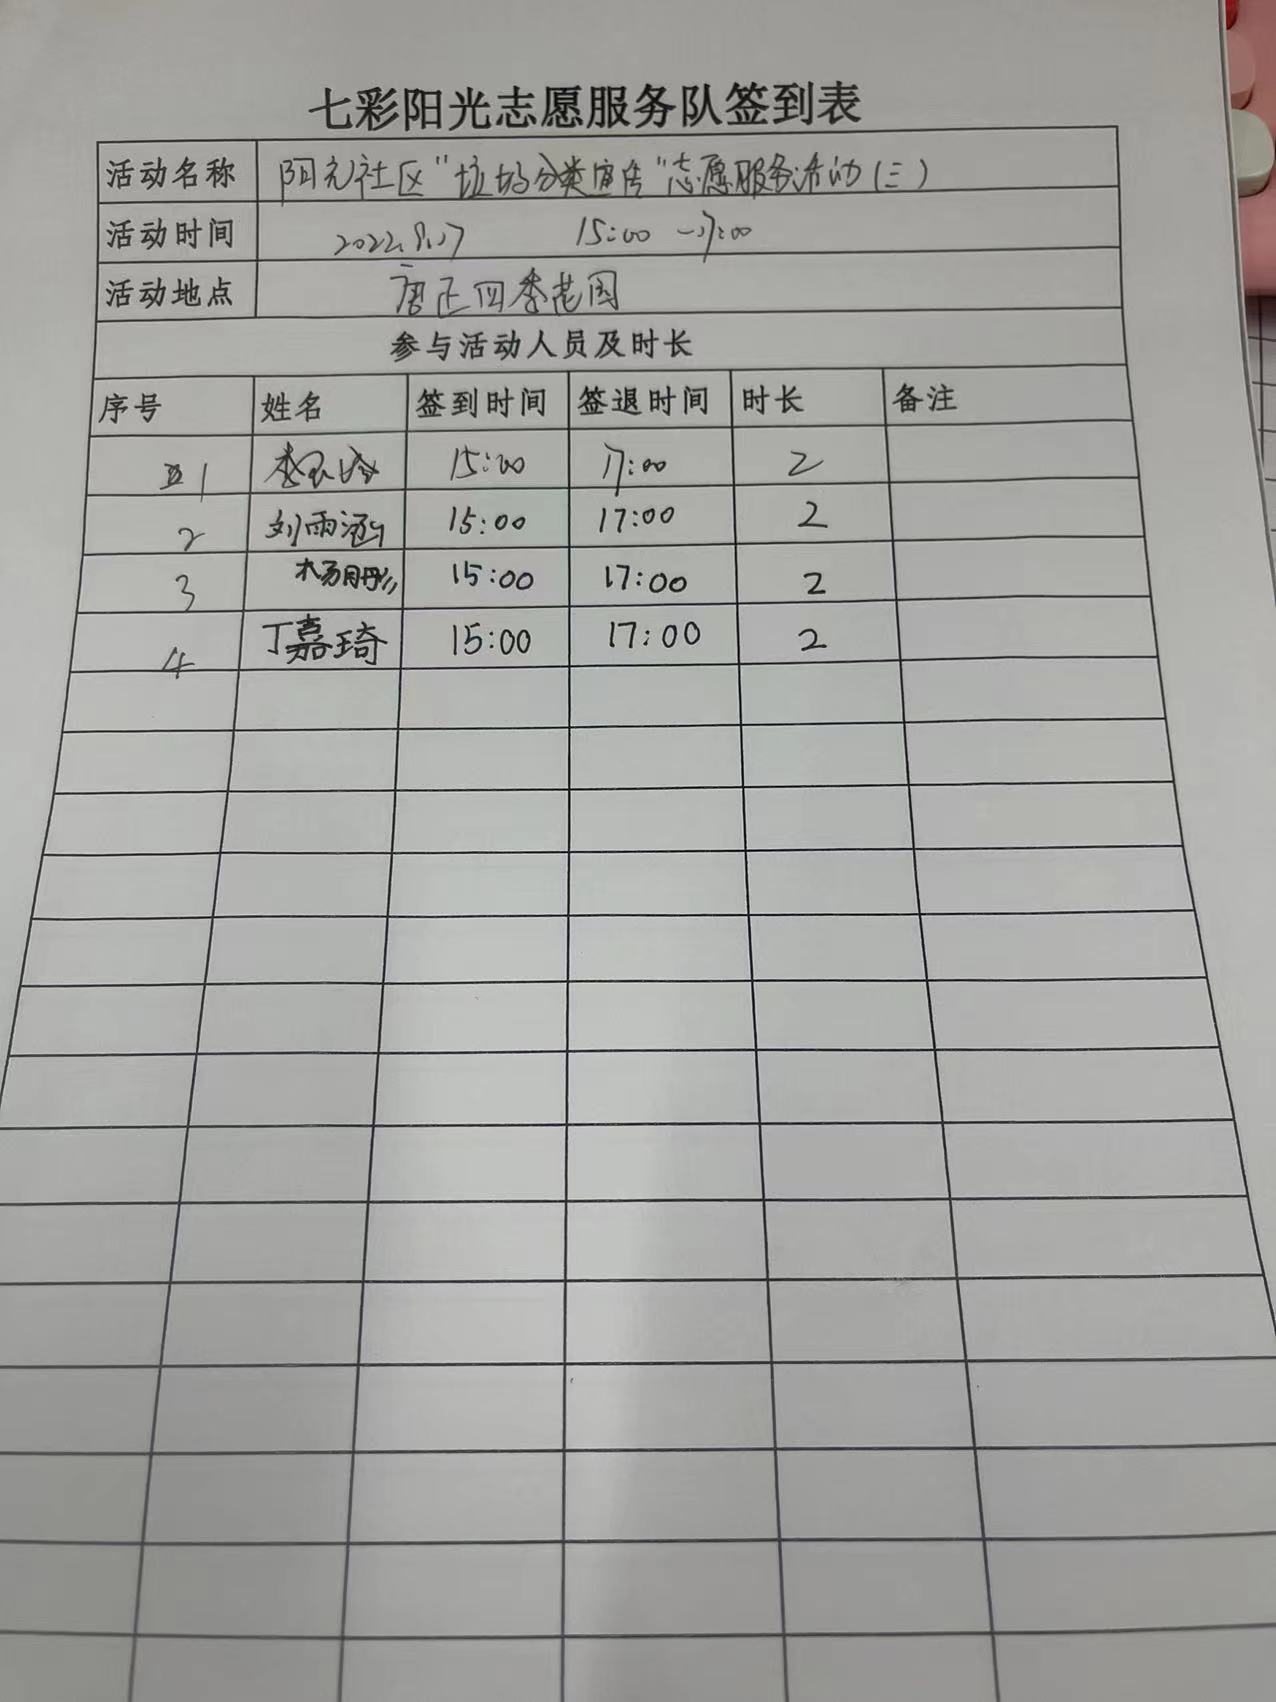 七彩阳光志愿服务队签到表
活动名称 阳光社区“垃圾分类宣传”志愿服务活动(三)
活动时间 2022.8.17 15:00-17:00
活动地点 唐正四季花园
参与活动人员及时长
序号 姓名 签到时间 签退时间 时长 备注
1 李 15:00 17:00 2
2 刘雨涵 15:00 17:00 2
3 杨丹彤 15:00 17:00 2
4 丁嘉琦 15:00 17:00 2